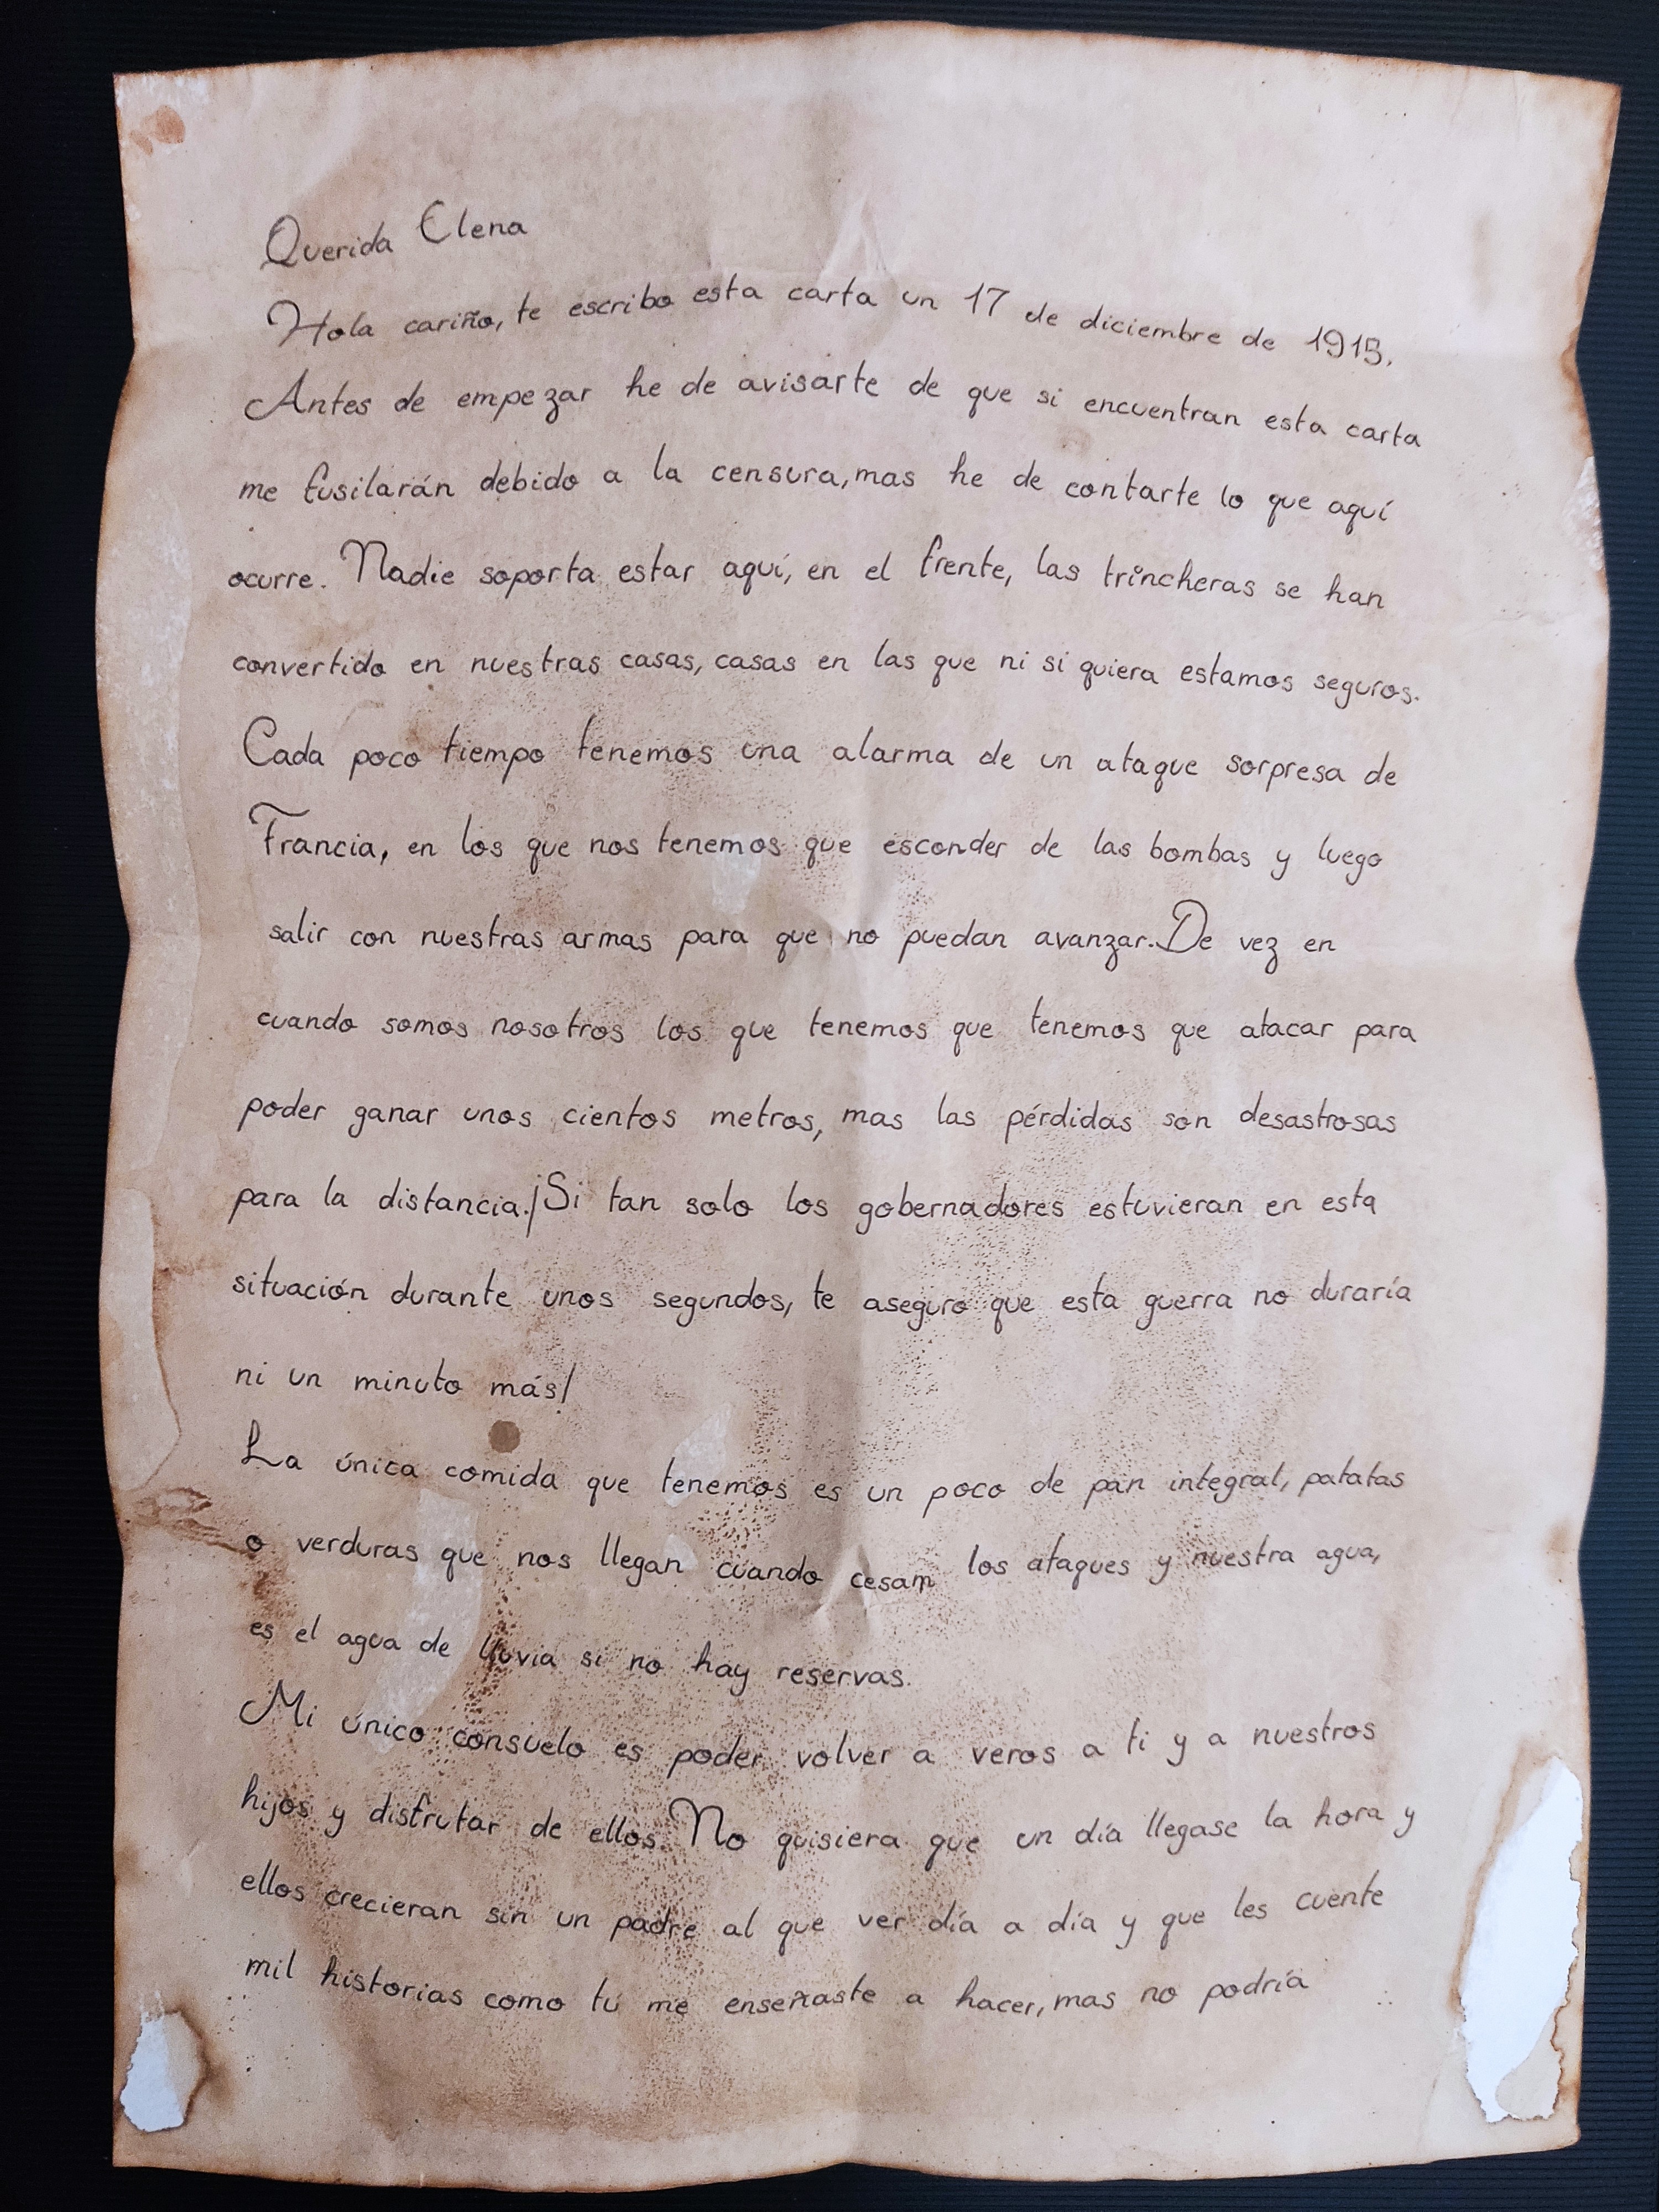 Querida Elena
Hola cariño, te escribo esta carta un 17 de diciembre de 1915.
Antes de empezar he de avisarte de que si encuentran esta carta
me fusilarán debido a la censura, mas he de contarte lo que aquí
ocurre. Nadie soporta estar aquí, en el frente, las trincheras se han
convertido en nuestras casas, casas en las que ni si quiera estamos seguros.
Cada poco tiempo tenemos una alarma de un ataque sorpresa de
Francia, en los que nos tenemos que esconder de las bombas y luego
salir con nuestras armas para que no puedan avanzar. De vez en
cuando somos nosotros los que tenemos que tenemos que atacar para
poder ganar unos cientos metros, mas las pérdidas son desastrosas
para la distancia. ¡Si tan solo los gobernadores estuvieran en esta
situación durante unos segundos, te aseguro que esta guerra no duraría
ni un minuto más!
La única comida que tenemos es un poco de pan integral, patatas
o verduras que nos llegan cuando cesam los ataques y nuestra agua,
es el agua de lluvia si no hay reservas.
Mi único consuelo es poder volver a veros a ti y a nuestros
hijos y disfrutar de ellos. No quisiera que un día llegase la hora y
ellos crecieran sin un padre al que ver día a día y que les cuente
mil historias como tú me enseñaste a hacer, mas no podría